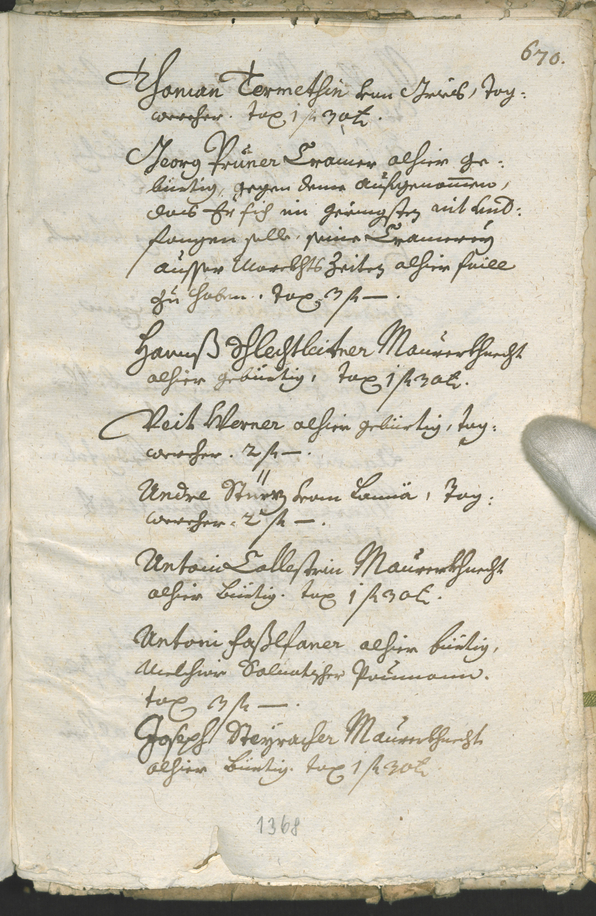 670.
Thoman Termethin von Ivis, Tag:
wercher. tax 1 f 30 k.
Georg Prüner Cramer alhier ge:
bürtig, gegen deme aufgenommen,
das Er sich im geringsten nit und:
fangen solle, seine Cramerey
ausser Marckhts Zeiten alhier faill
zu haben. Tax 3 f —.
Hannß Schlechtleitner Maurerkhnecht
alhier gebürtig, Tax 1 f 30 k.
Veit Werner alhier gebürtig, tag:
wercher. 2 f —.
Andre Stürz vom Lamä, Tag:
wercher. 2 f —.
Antoni Callestrin Maurerkhnecht
alhier bürtig. tax 1 f 30 k.
Antoni faßlfaner alhier bürtig,
Melchior Paumann.
tax 3 f —.
Joseph Steyracher Maurerkhnecht
alhier bürtig. tax 1 f 30 k.
1368